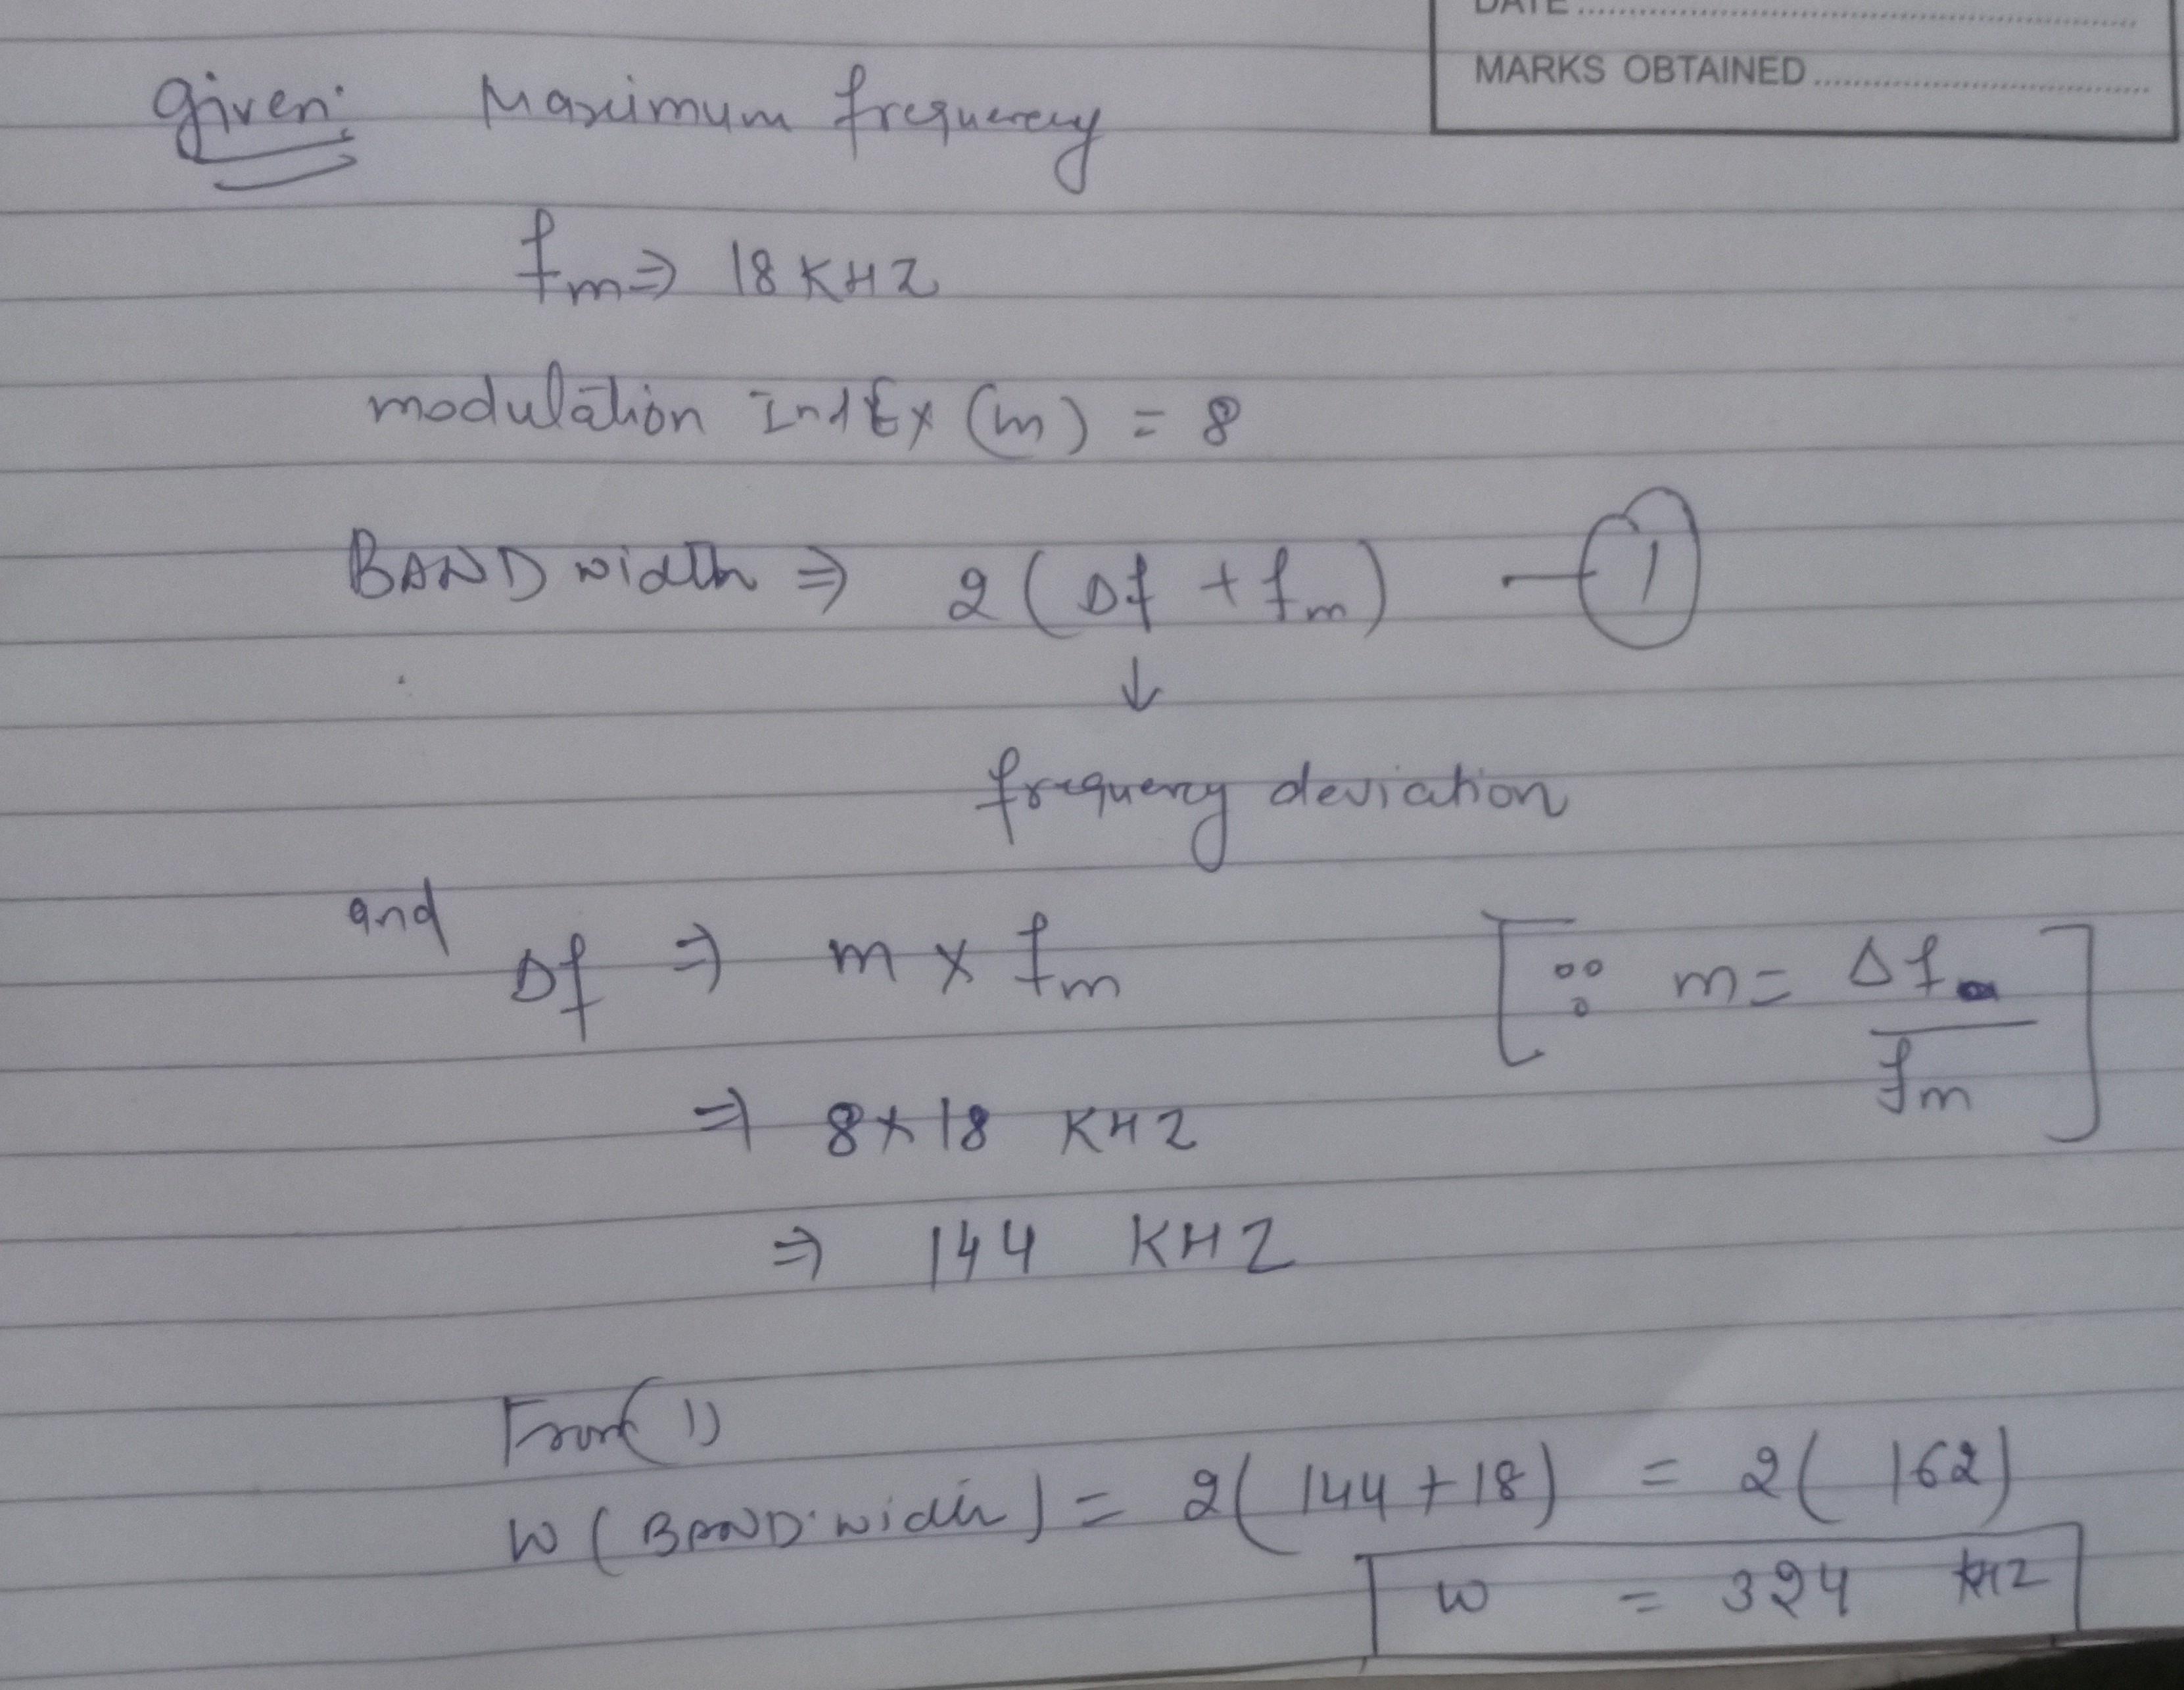 DATE ........................
MARKS OBTAINED ........................
Given: Maximum frequency
fm ⇒ 18 KHZ
modulation IndEx (m) = 8
BAND width ⇒ 2 ( Δf + fm ) — ①
↓
frequency deviation
and
Δf ⇒ m × fm [ ∵ m = Δf / fm ]
⇒ 8 × 18 KHZ
⇒ 144 KHZ
From (1)
W ( BAND width ) = 2 ( 144 + 18 ) = 2 ( 162 )
W = 324 KHZ